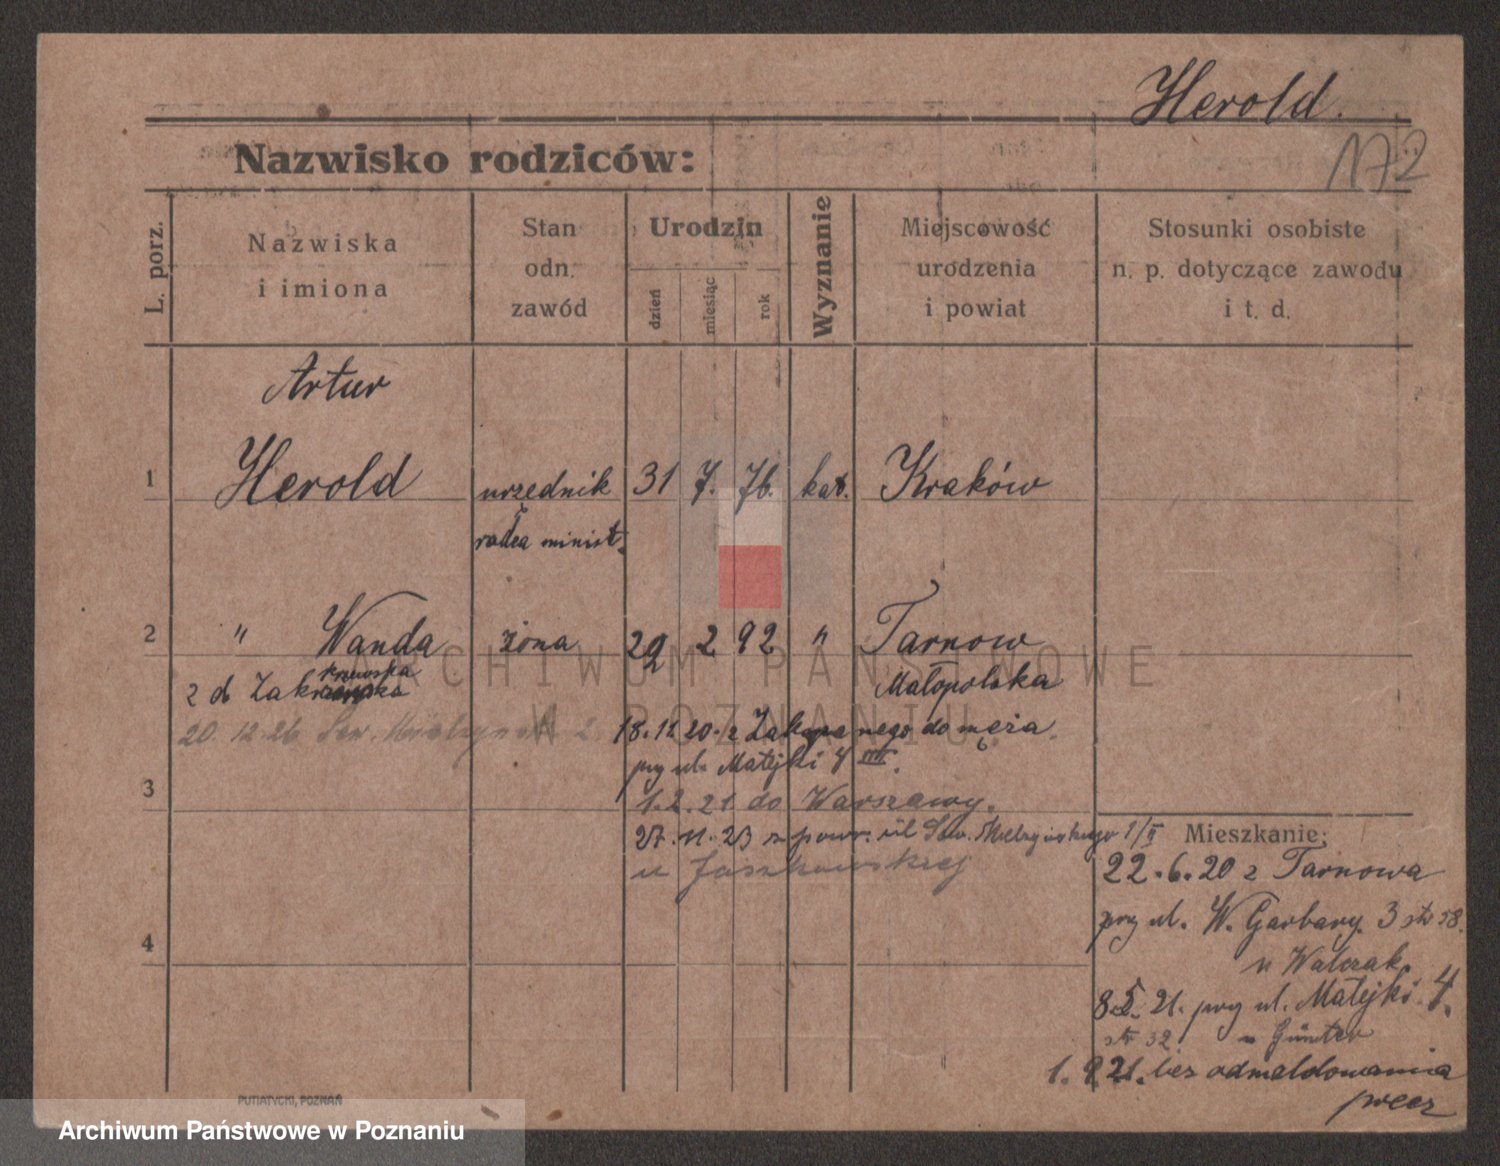 Herold.
172
Nazwisko rodziców:
L. porz.
Nazwiska
i imiona
Stan
odn.
zawód
Urodzin
dzień
miesiąc
rok
Wyznanie
Miejscowość
urodzenia
i powiat
Stosunki osobiste
n. p. dotyczące zawodu
i t. d.
Artur
1 Herold urzędnik 31 7. 76. kat. Kraków
radca minist.
2 " Wanda żona 29 2 92 " Tarnow
z d Zakrzewska
krzewska
Małopolska
20. 12. 26 Sew. Mielżyńsk 2.
18. 12 20. z Zakopanego do męża.
przy ul. Matejki 4 III.
3
1. 2. 21 do Warszawy.
27. 11. 23 z powr. ul Sew. Mielżyńskiego 1/II
u Jaszkowskiej
4
Mieszkanie:
22. 6. 20 z Tarnowa
przy ul. W. Garbary 3 str 58.
u Walczak
8. 5. 21. przy ul. Matejki 4.
str 32 u Günter
1. 9 21. bez odmeldowania
precz
ARCHIWUM PAŃSTWOWE
W POZNANIU
PUTIATYCKI, POZNAŃ
Archiwum Państwowe w Poznaniu